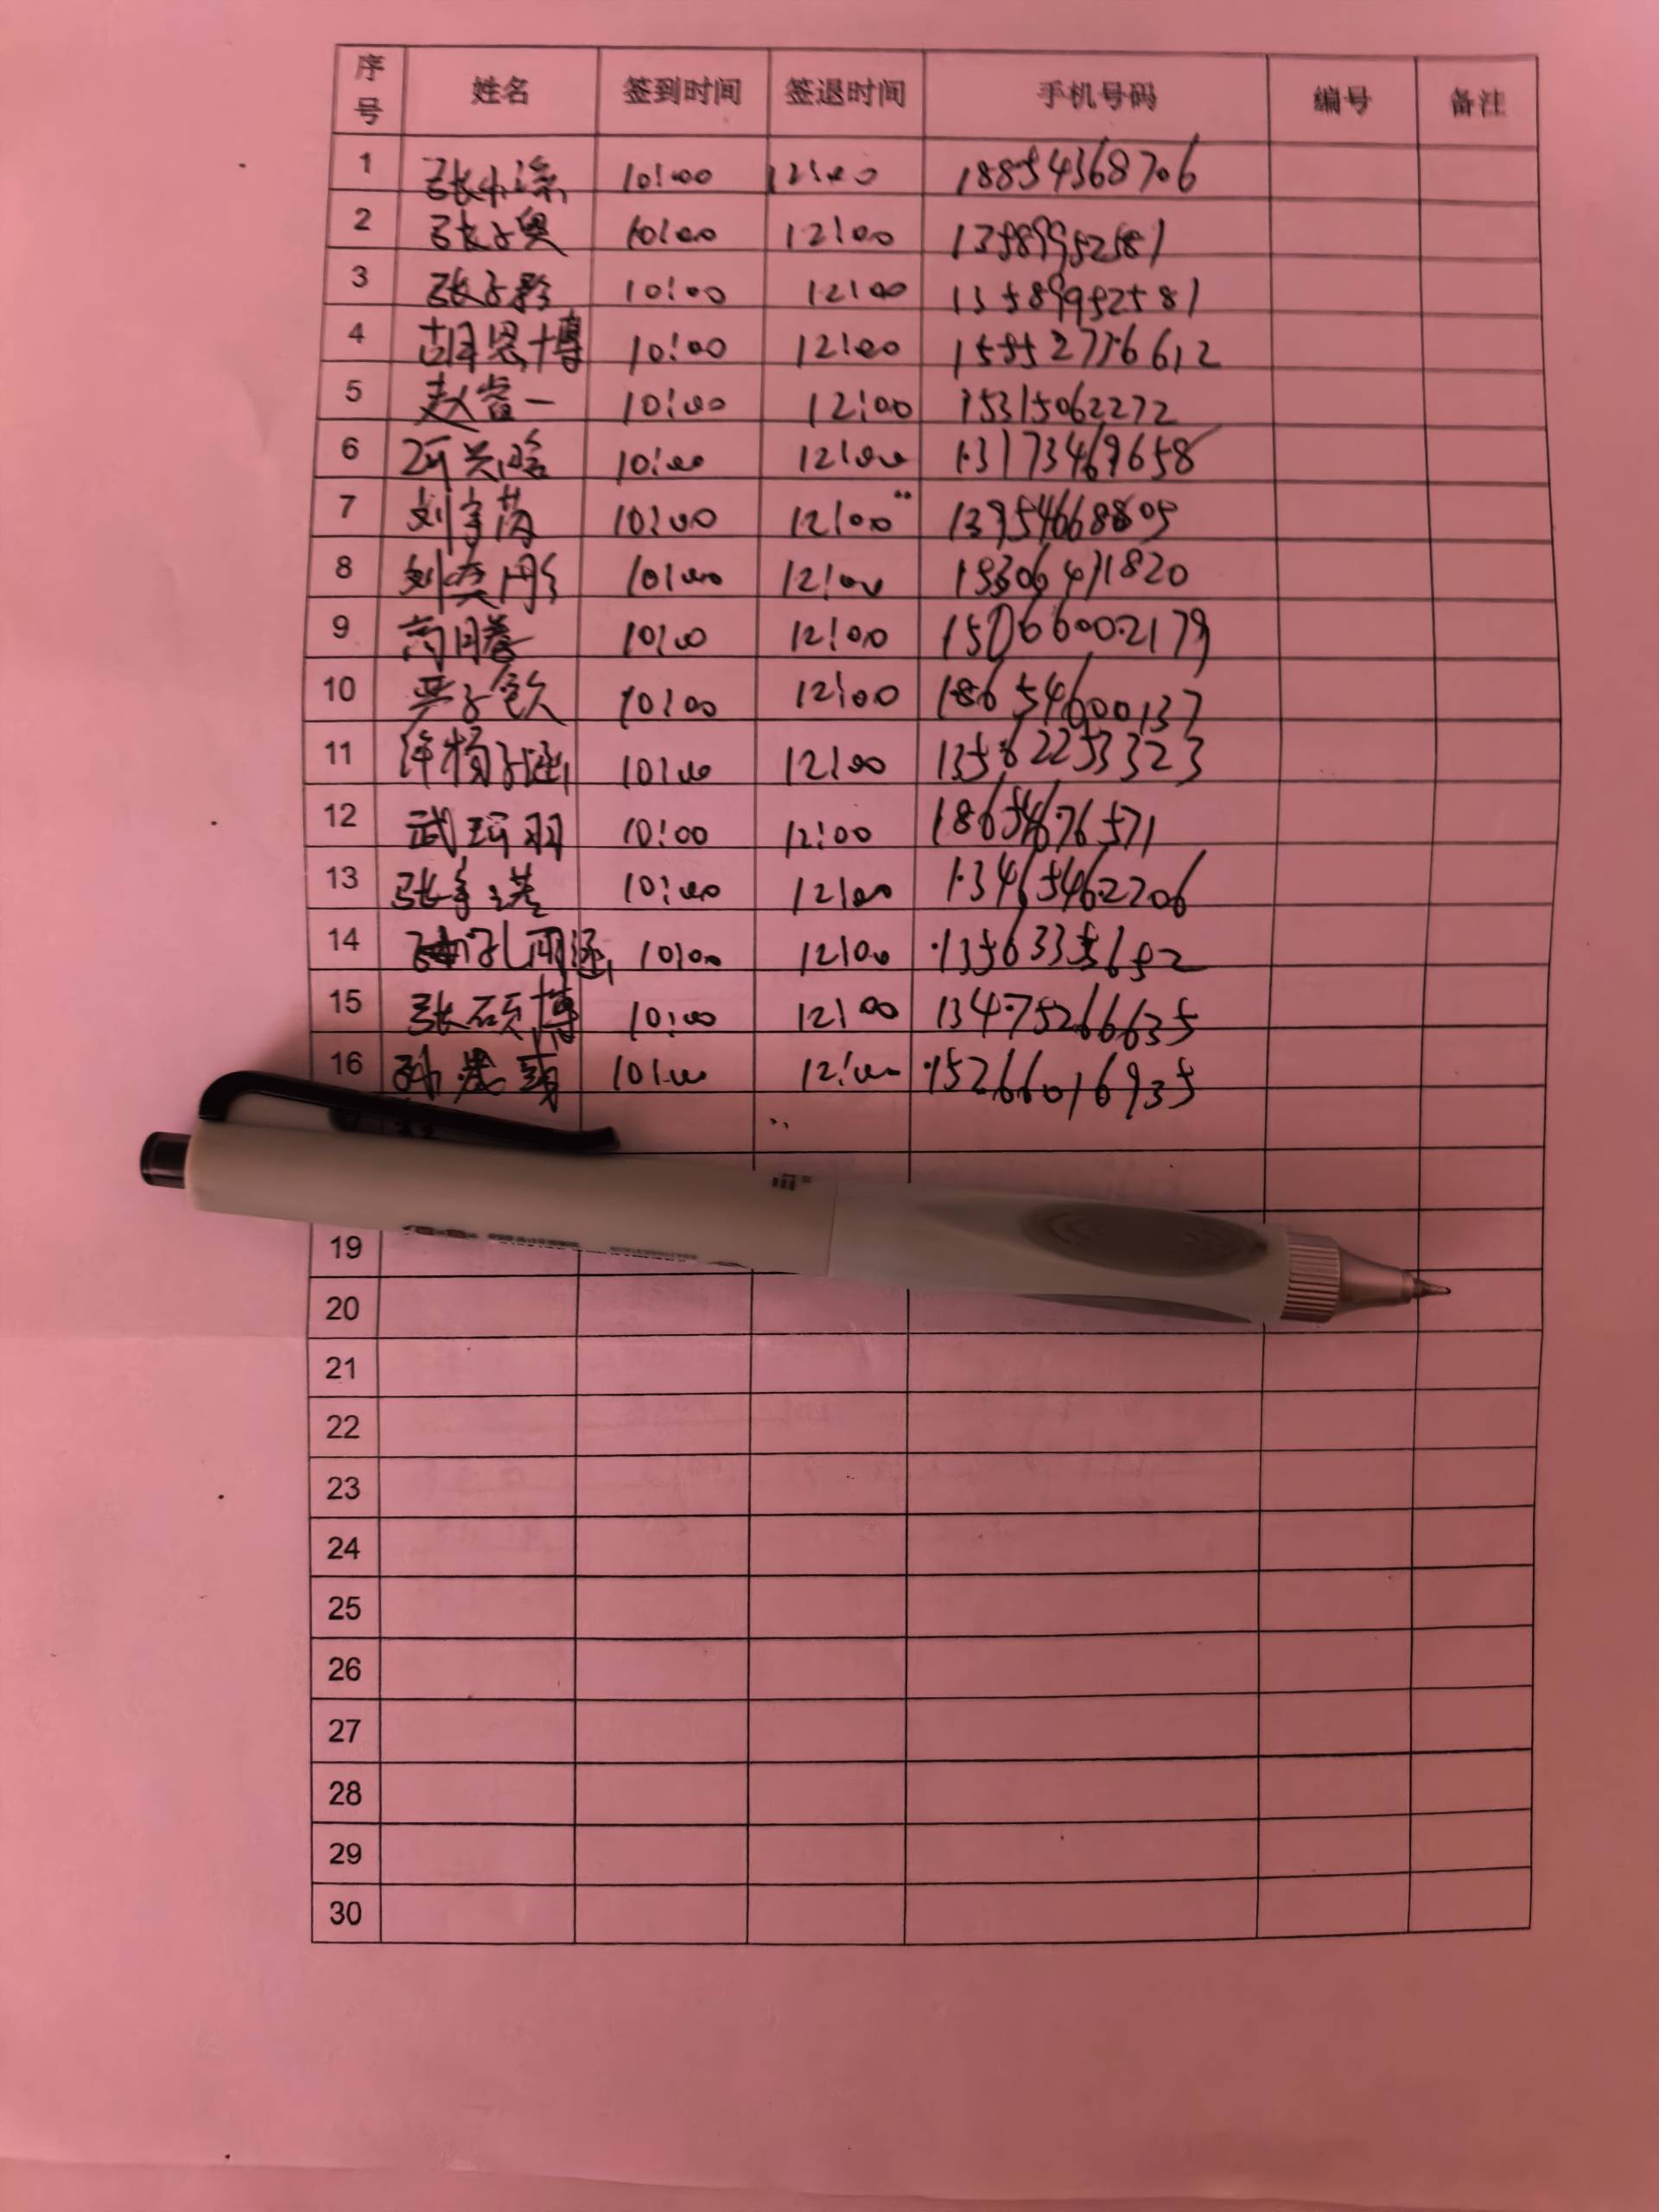 序号 姓名 签到时间 签退时间 手机号码 编号 备注
1 张小涤 10:00 12:00 18854368706
2 张子奥 10:00 12:00 13589952581
3 张子黔 10:00 12:00 13589952581
4 胡恩博 10:00 12:00 15552736612
5 赵睿一 10:00 12:00 15315062272
6 10:00 12:00 13173469658
7 刘宇菡 10:00 12:00 13954668805
8 刘奕彤 10:00 12:00
9 10:00 12:00 15066002179
10 严子钦 10:00 12:00 18654600137
11 许杨子涵 10:00 12:00 13562253323
12 武珂羽 10:00 12:00 18654676571
13 10:00 12:00 13465462206
14 孔雨涵 10:00 12:00
15 张硕博 10:00 12:00 13475266635
16 10:00 12:00 15266016935
19
20
21
22
23
24
25
26
27
28
29
30